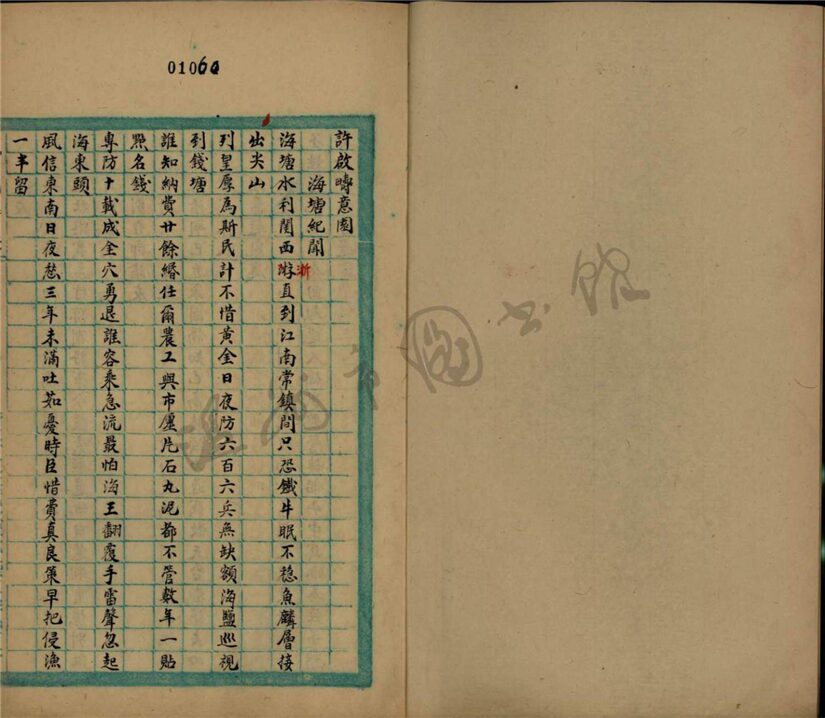 01060
許啟疇意園
海塘紀聞
海塘水利関西游浙直到江南常鎮間只恐鐵牛眠不穏魚麟層接
出尖山
列皇厚為斯民計不惜黃金日夜防六百六兵無缺額海鹽巡視
到錢塘
誰知納費廿餘緡任爾農工與市廛片石丸泥都不管數年一貼
點名錢
專防十載成全穴勇退誰容乘急流最怕海王翻覆手雷聲忽起
海東頭
風信東南日夜愁三年未滿吐茹憂時臣惜費真良策早把侵漁
一半留
温州市图书馆